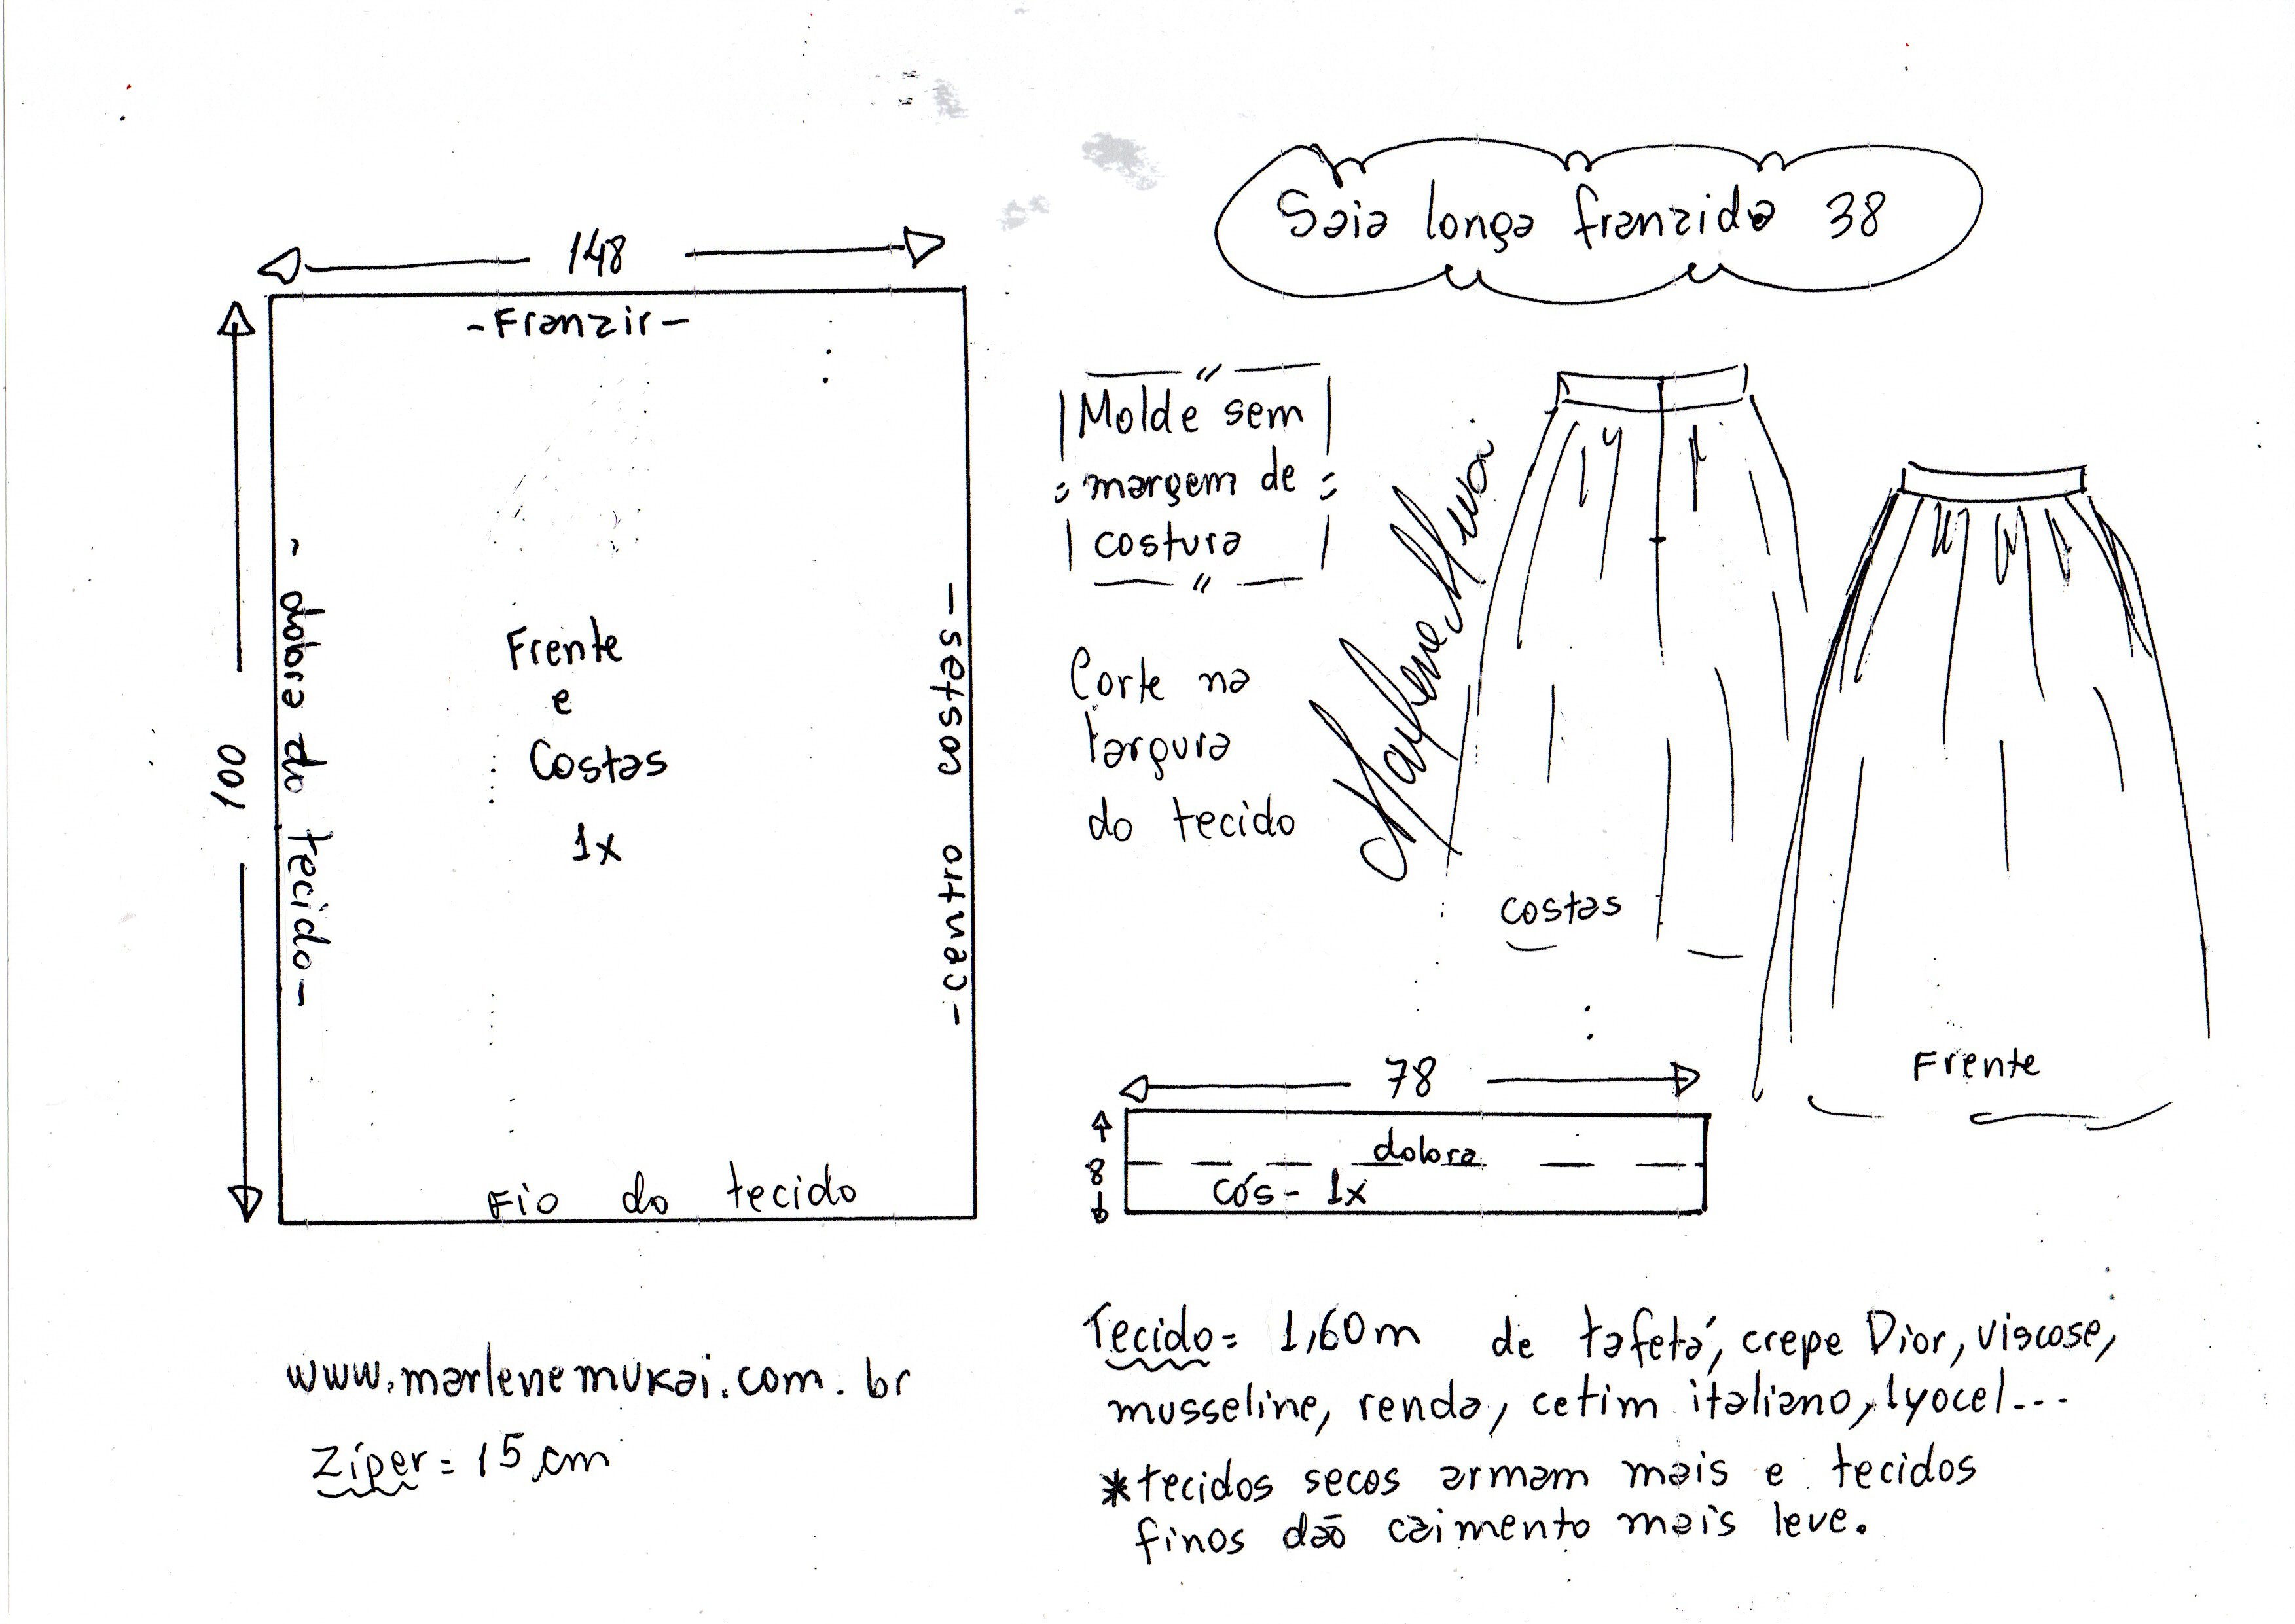 Saia longa franzida 38
148
-Franzir-
100
- dobra do tecido-
Frente
e
Costas
1x
-centro costas-
Fio do tecido
Molde sem
margem de
costura
Corte na
largura
do tecido
Marlene Mukai
costas
Frente
78
8
dobra
cós- 1x
www.marlenemukai.com.br
Zíper= 15cm
Tecido= 1,60m de tafetá, crepe Dior, viscose,
musseline, renda, cetim italiano, lyocel...
*tecidos secos armam mais e tecidos
finos dão caimento mais leve.